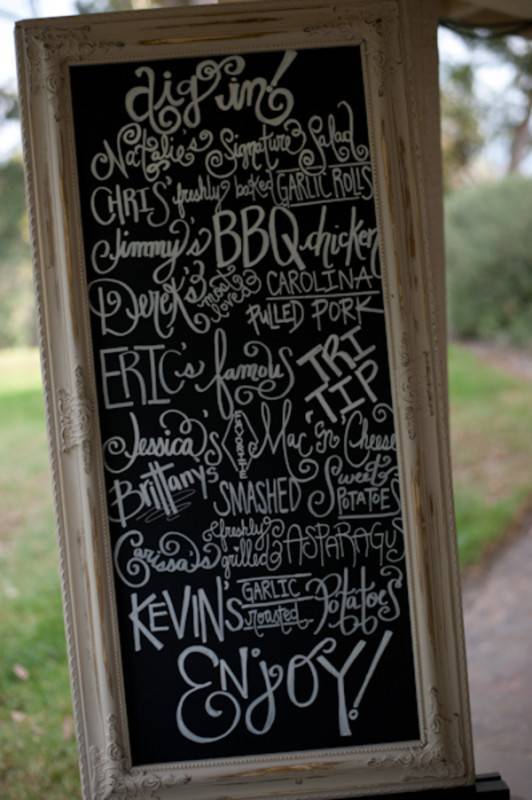 dig in!
Natalie's Signature Salad
CHRIS' freshly baked GARLIC ROLLS
Jimmy's BBQ chicken
Derek's most loved CAROLINA
PULLED PORK
ERIC's famous TRI
TIP
Jessica's FAVORITE Mac 'n' Cheese
Brittany's SMASHED Sweet
POTATOES
Carissa's freshly grilled ASPARAGUS
KEVIN's GARLIC roasted Potatoes
ENJOY!